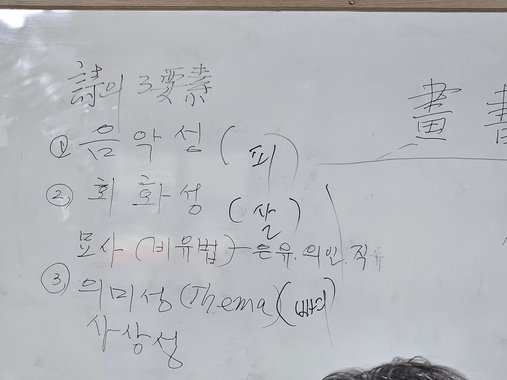 詩의 3要素
① 음악성 (피)
② 회화성 (살)
묘사 (비유법) - 은유. 의인. 직유
③ 의미성 (Thema) (뼈)
사상성
畫